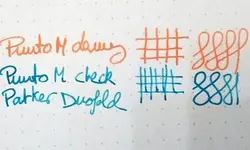 Punto M danny
Punto M. check
Parker Duofold